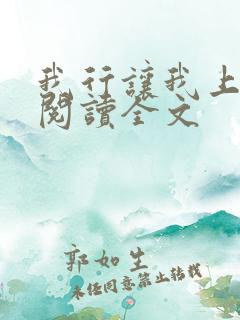 我行讓我上
閱讀全文
郭如生
未經同意禁止轉載